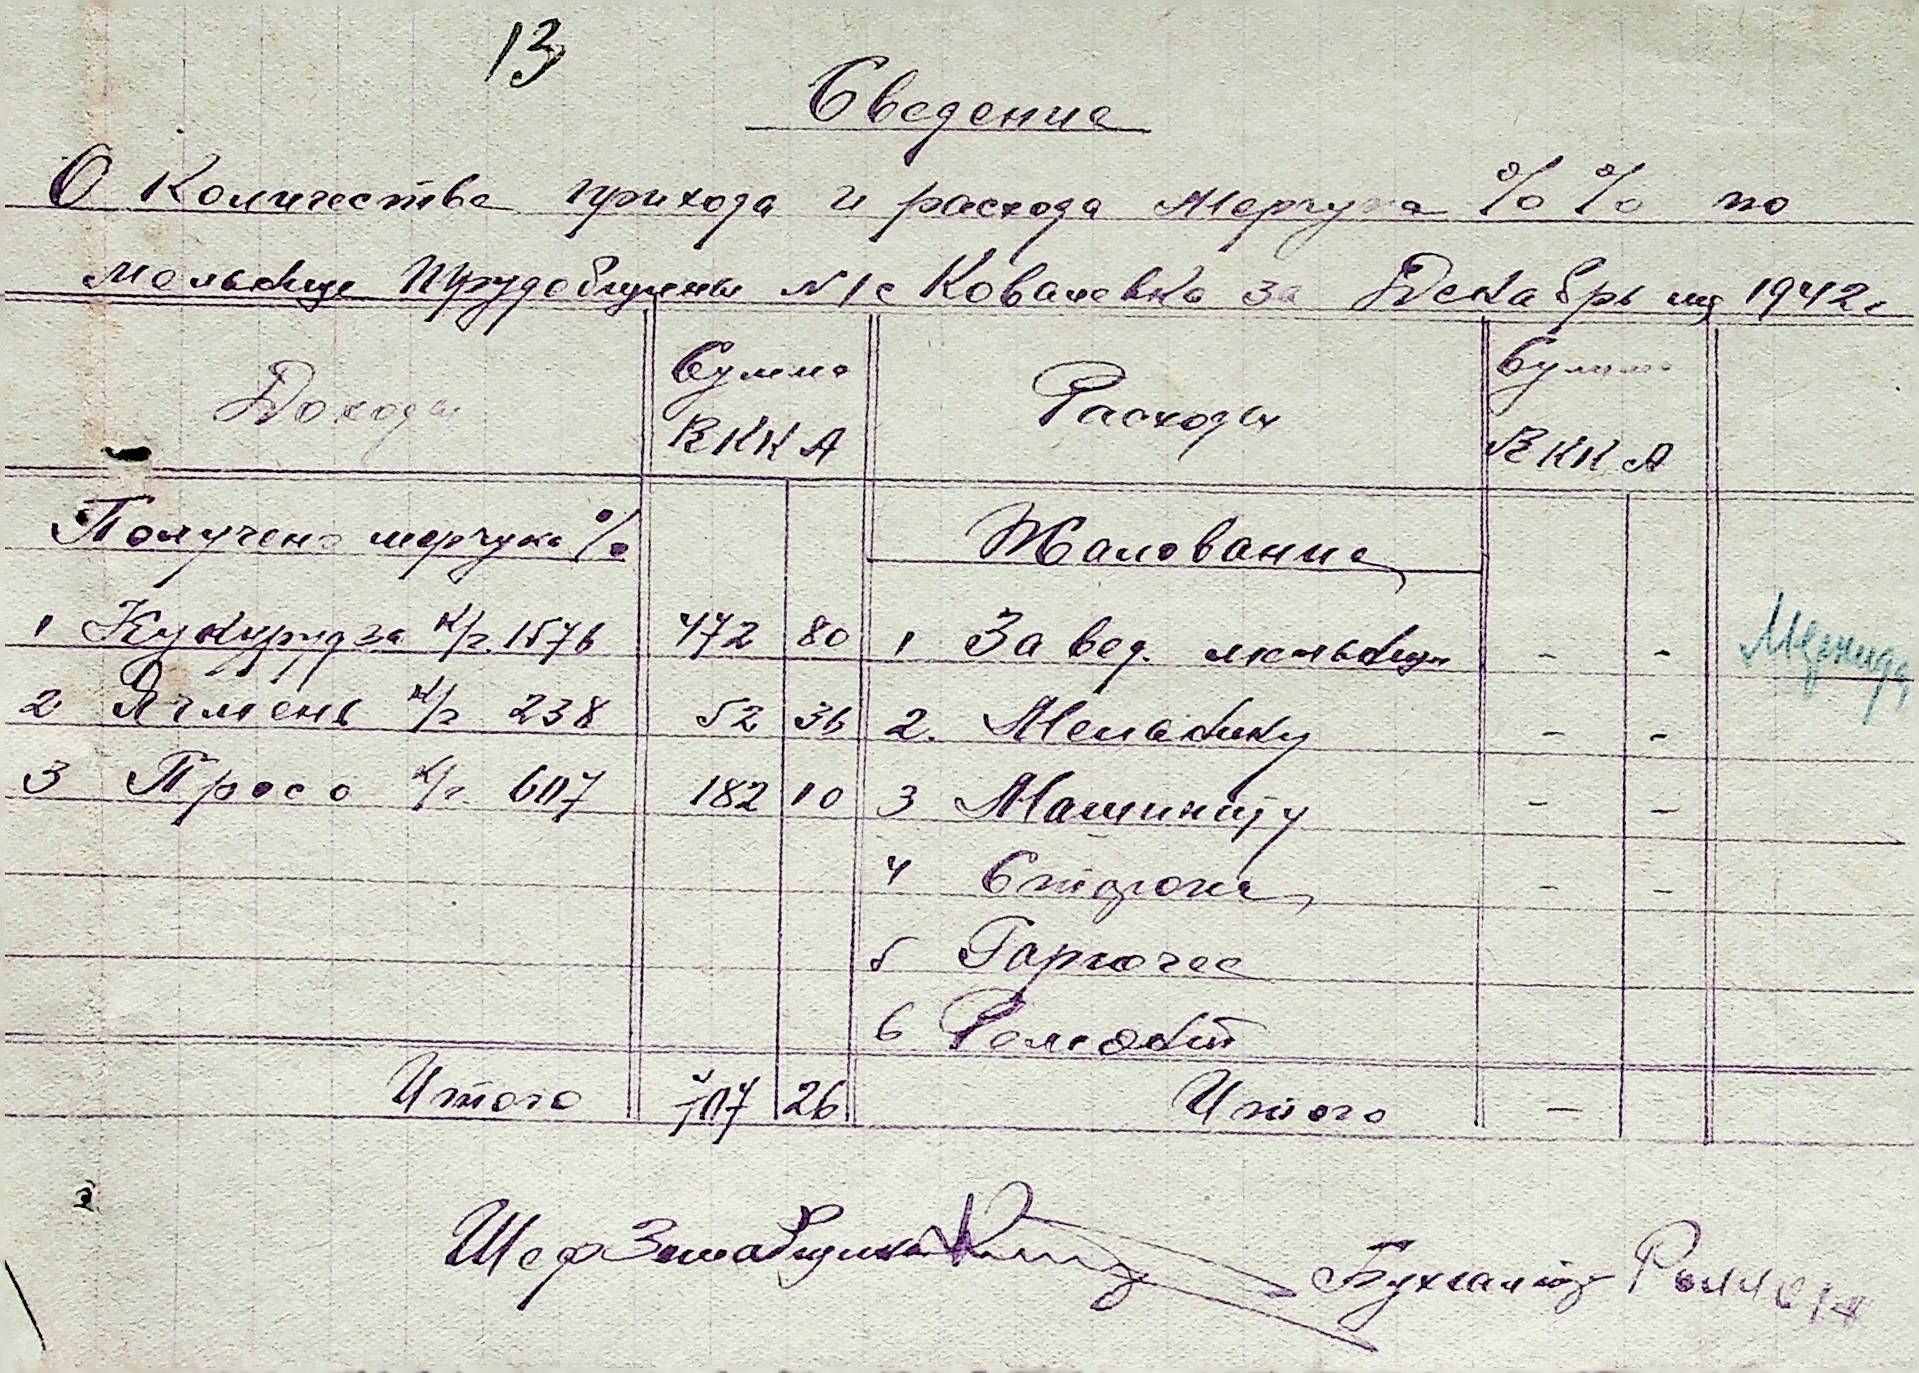 13
Сведение
О Количестве прихода и расхода Мерчука %% по
мельнице Трудобщины №1 с Ковалевка за Декабрь м-ц 1942 г
Доходы
Сумма
RKK А
Расходы
Сумма
RKK А
Получено мерчука %
Жалование
1 Кукурудза к/г. 1576 472 80 1 Завед. мельницы - -
2 Ячмень к/г 238 52 36 2. Мельнику - -
3 Просо к/г. 607 182 10 3 Машинисту - -
4 Сторожа - -
5 Горючее
6 Ремонт
Итого 707 26 Итого -
Шеф
Бухгалтер